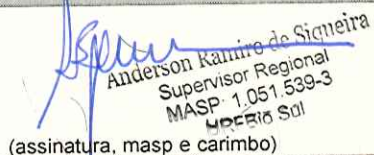 Anderson Ramiro de Siqueira
Supervisor Regional
MASP 1.051.539-3
Sul
(assinatura, masp e carimbo)